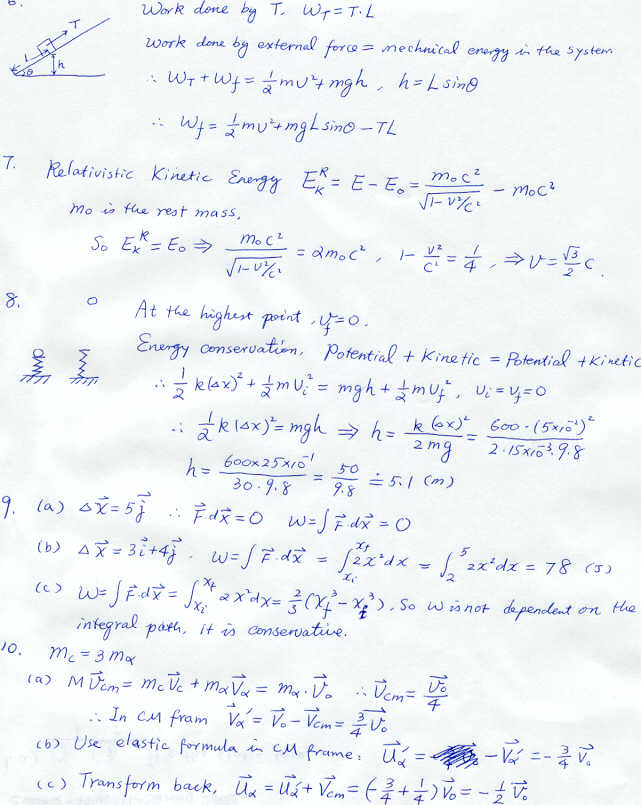 6.
T
L
h
θ
Work done by T. W_T = T·L
Work done by external force = mechnical energy in the system
∴ W_T + W_f = 1/2 mυ² + mgh , h = L sinθ
∴ W_f = 1/2 mυ² + mgL sinθ − TL
7. Relativistic Kinetic Energy E_K^R = E − E₀ = m₀c²/√(1−V²/c²) − m₀c²
m₀ is the rest mass.
So E_K^R = E₀ ⇒ m₀c²/√(1−V²/c²) = 2m₀c² , 1 − V²/c² = 1/4 , ⇒ V = √3/2 c.
8.
At the highest point , υ_f = 0.
Energy conservation, Potential + Kinetic = Potential + Kinetic
∴ 1/2 k(Δx)² + 1/2 mυ_i² = mgh + 1/2 mυ_f² , υ_i = υ_f = 0
∴ 1/2 k(Δx)² = mgh ⇒ h = k(Δx)²/2mg = 600·(5×10⁻¹)²/2·15×10⁻³·9.8
h = 600×25×10⁻¹/30·9.8 = 50/9.8 ≐ 5.1 (m)
9. (a) Δx⃗ = 5j⃗ ∴ F⃗·dx⃗ = 0 W = ∫F⃗·dx⃗ = 0
(b) Δx⃗ = 3i⃗ + 4j⃗ . W = ∫F⃗·dx⃗ = ∫_{x_i}^{x_f} 2x²dx = ∫_2^5 2x²dx = 78 (J)
(c) W = ∫F⃗·dx⃗ = ∫_{x_i}^{x_f} 2x²dx = 2/3(x_f³ − x_i³), So W is not dependent on the
integral path, it is conservative.
10. m_c = 3m_α
(a) M V⃗_cm = m_c V⃗_c + m_α V⃗_α = m_α · V⃗₀ ∴ V⃗_cm = V⃗₀/4
∴ In CM fram V⃗_α' = V⃗₀ − V⃗_cm = 3/4 V⃗₀
(b) Use elastic formula in CM frame: U⃗_α' = − V⃗_α' = − 3/4 V⃗₀
(c) Transform back, U⃗_α = U⃗_α' + V⃗_cm = (−3/4 + 1/4) V⃗₀ = − 1/2 V⃗₀